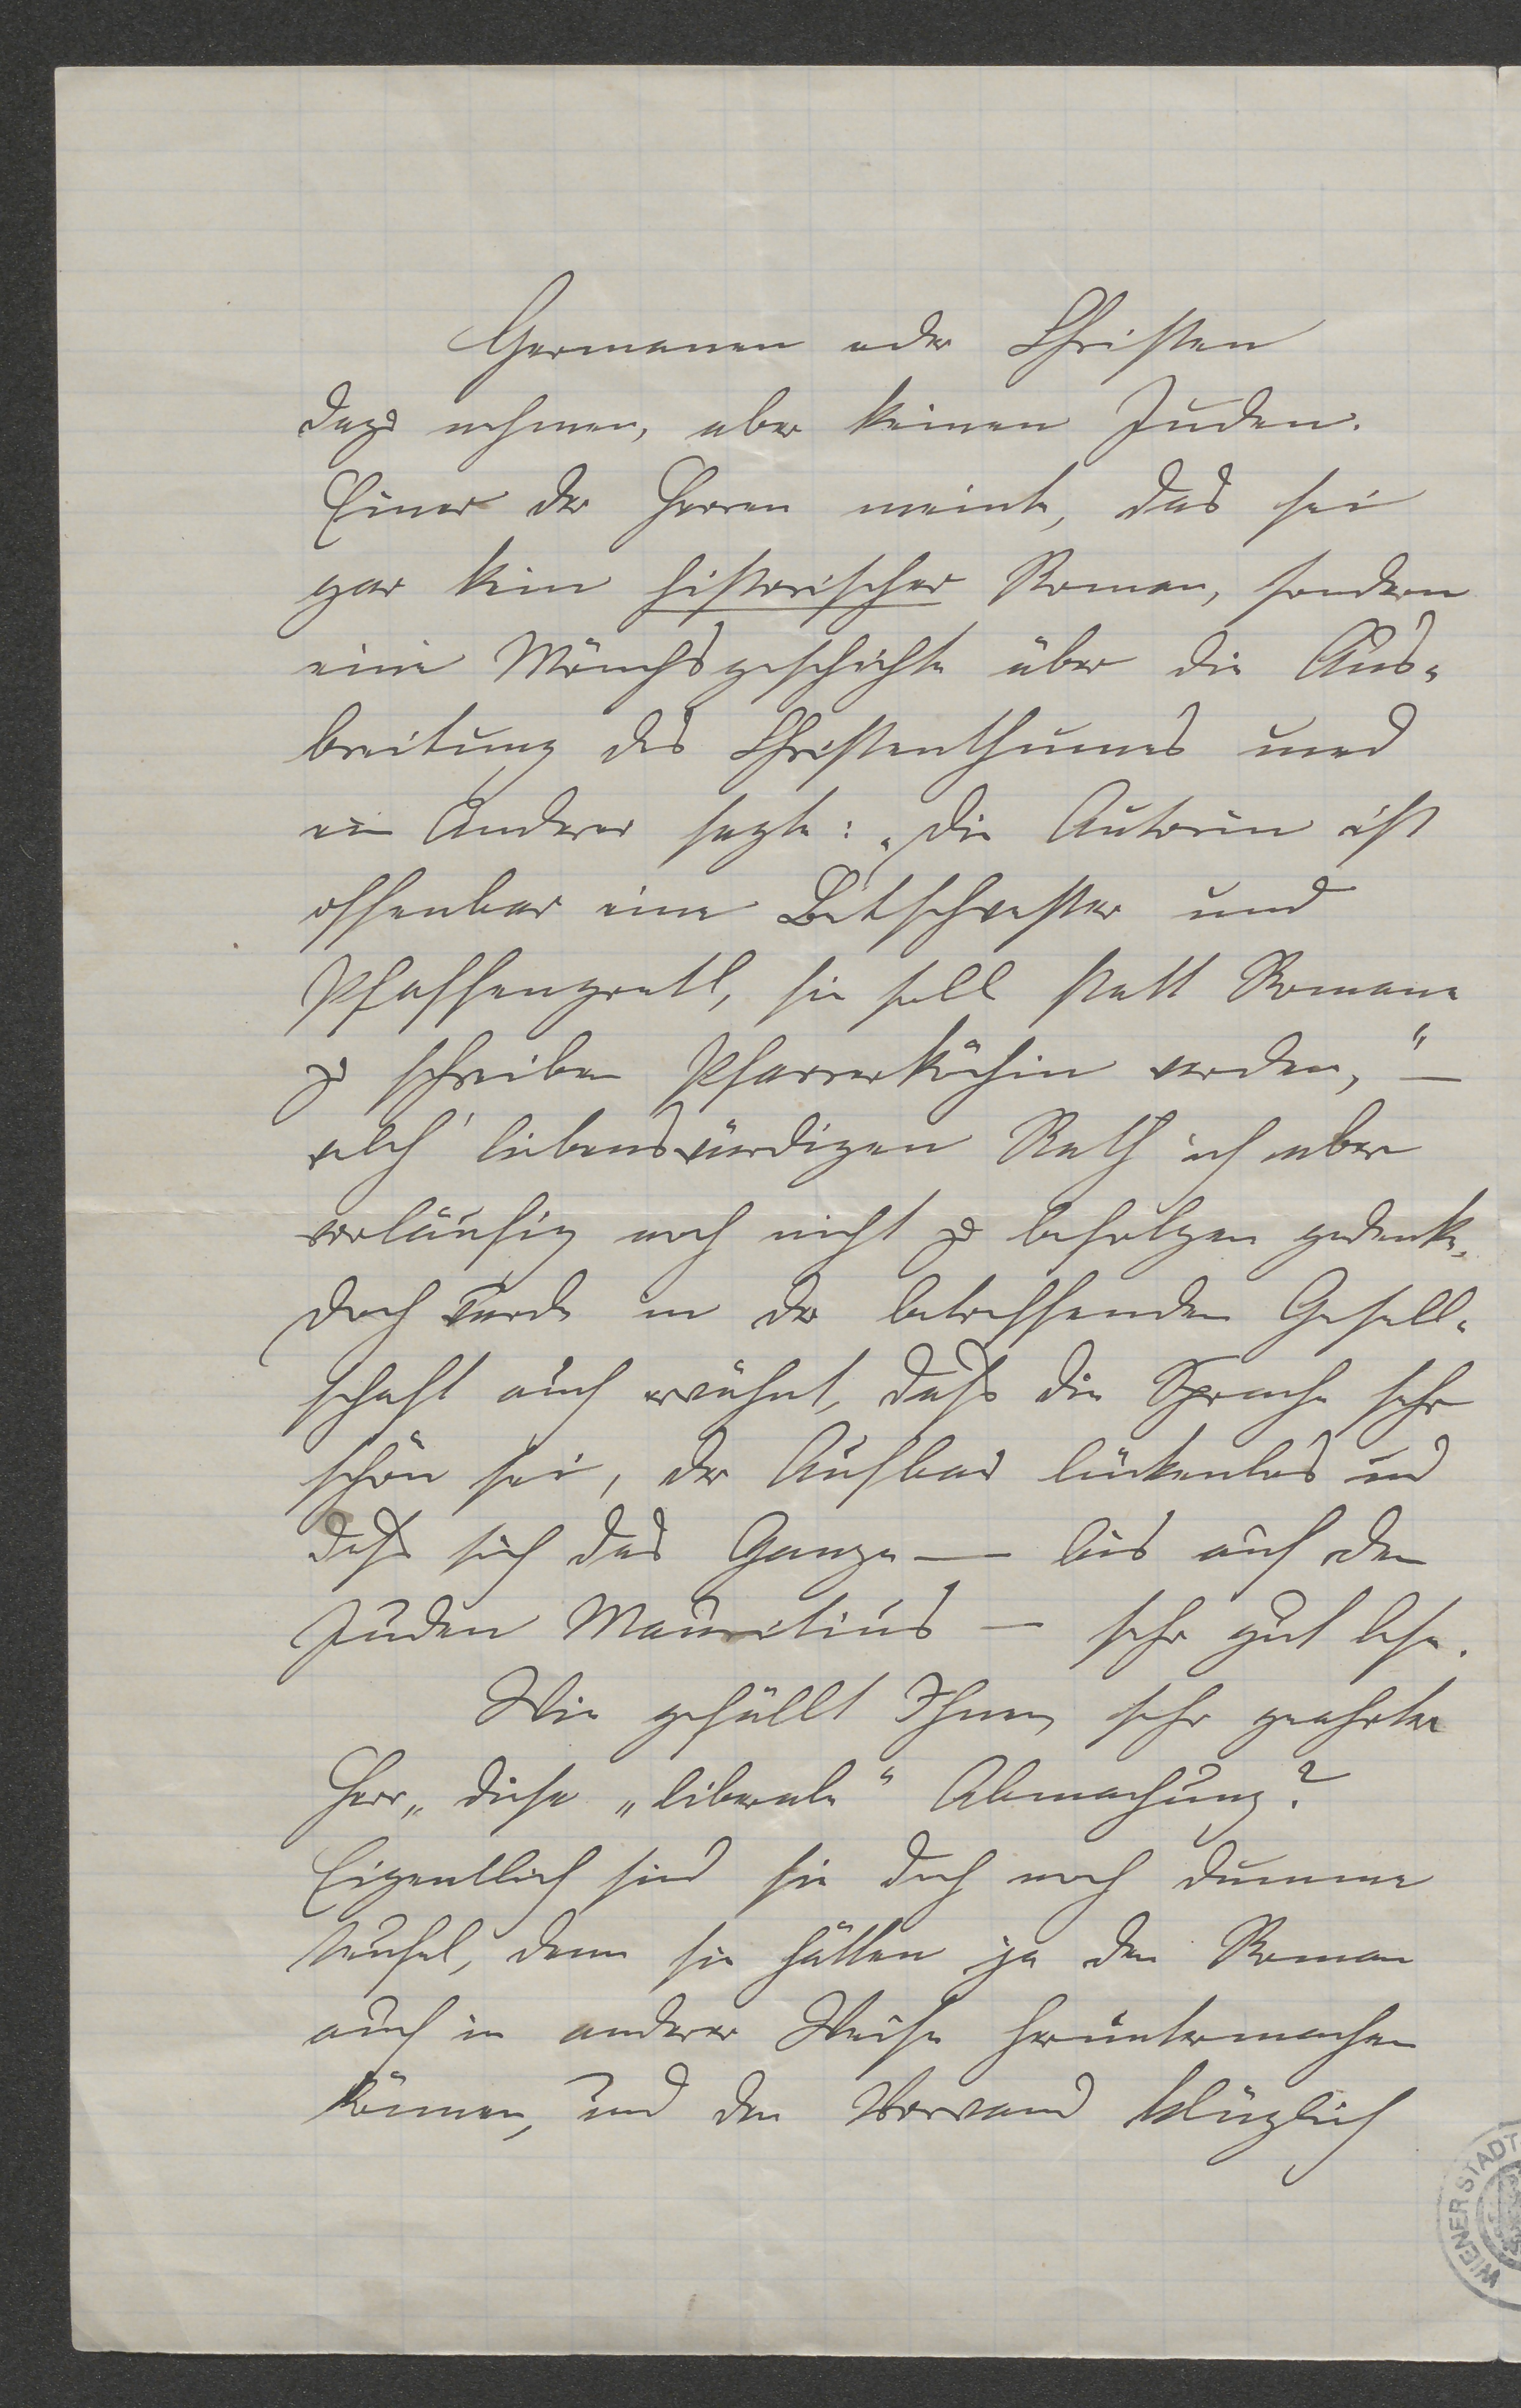 Germanen oder Christen
dazu nehmen, aber keinen Juden.
Einer der Herren meinte, das sei
gar kein historischer Roman, sondern
eine Mönchsgeschichte über die Aus-
breitung des Christenthumes und
ein Anderer sagte: „die Autorin ist
offenbar eine Betschwester und
Pfaffengretl, sie soll statt Romane
zu schreiben Pfarrerköchin werden," —
welch' liebenswürdigen Rath ich aber
vorläufig noch nicht zu befolgen gedenke,
doch wurde in der betreffenden Gesell-
schaft auch erwähnt, daß die Sprache sehr
schön sei, der Aufbau lückenlos und
daß sich das Ganze — bis auf den
Juden Mauritius — sehr gut lese.
Wie gefällt Ihnen, sehr geehrter
Herr, diese „liberale" Abmachung?
Eigentlich sind sie doch noch dumme
Teufel, denn sie hätten ja den Roman
auch in anderer Weise heruntermachen
können, und den Vorwand klüglich
WIENER STADT